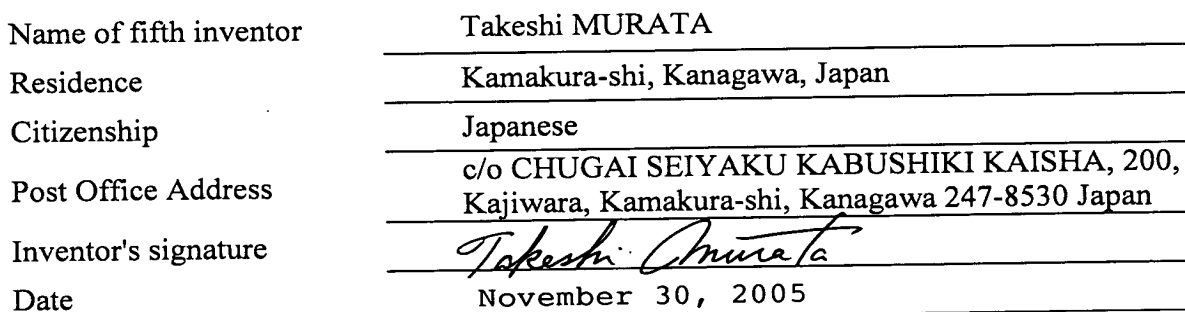 Name of fifth inventor Takeshi MURATA
Residence Kamakura-shi, Kanagawa, Japan
Citizenship Japanese
Post Office Address c/o CHUGAI SEIYAKU KABUSHIKI KAISHA, 200,
Kajiwara, Kamakura-shi, Kanagawa 247-8530 Japan
Inventor's signature Takeshi Murata
Date November 30, 2005